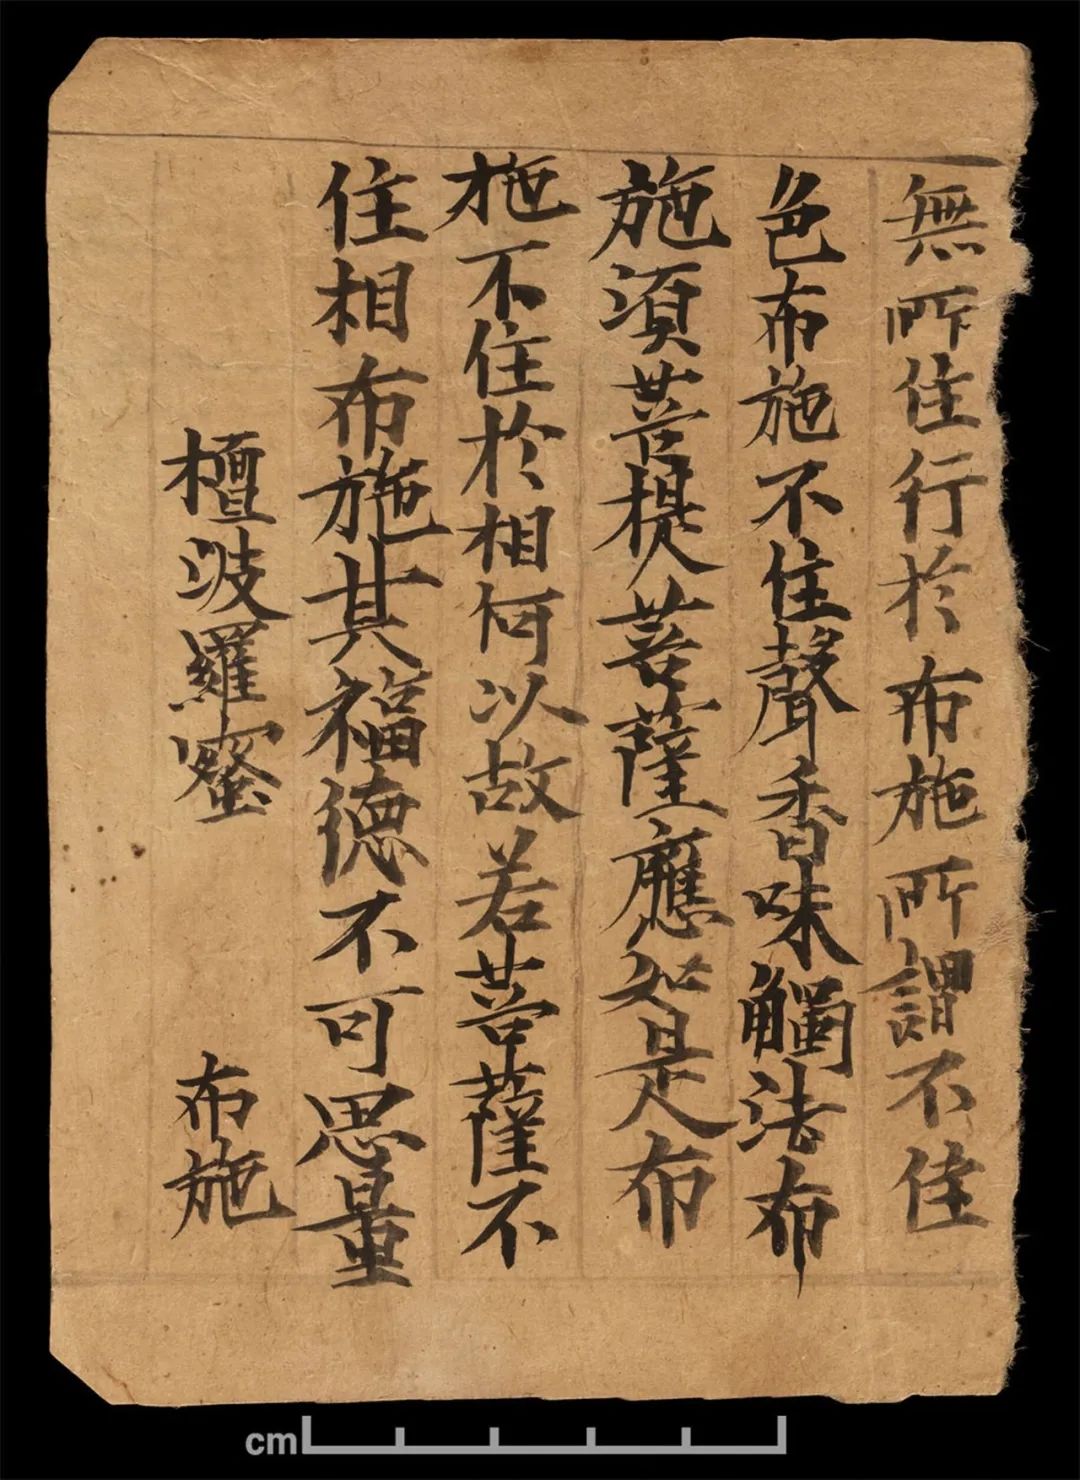 無所住行於布施所謂不住
色布施不住聲香味觸法布
施須菩提菩薩應如是布
施不住於相何以故若菩薩不
住相布施其福德不可思量
檀波羅蜜 布施
cm